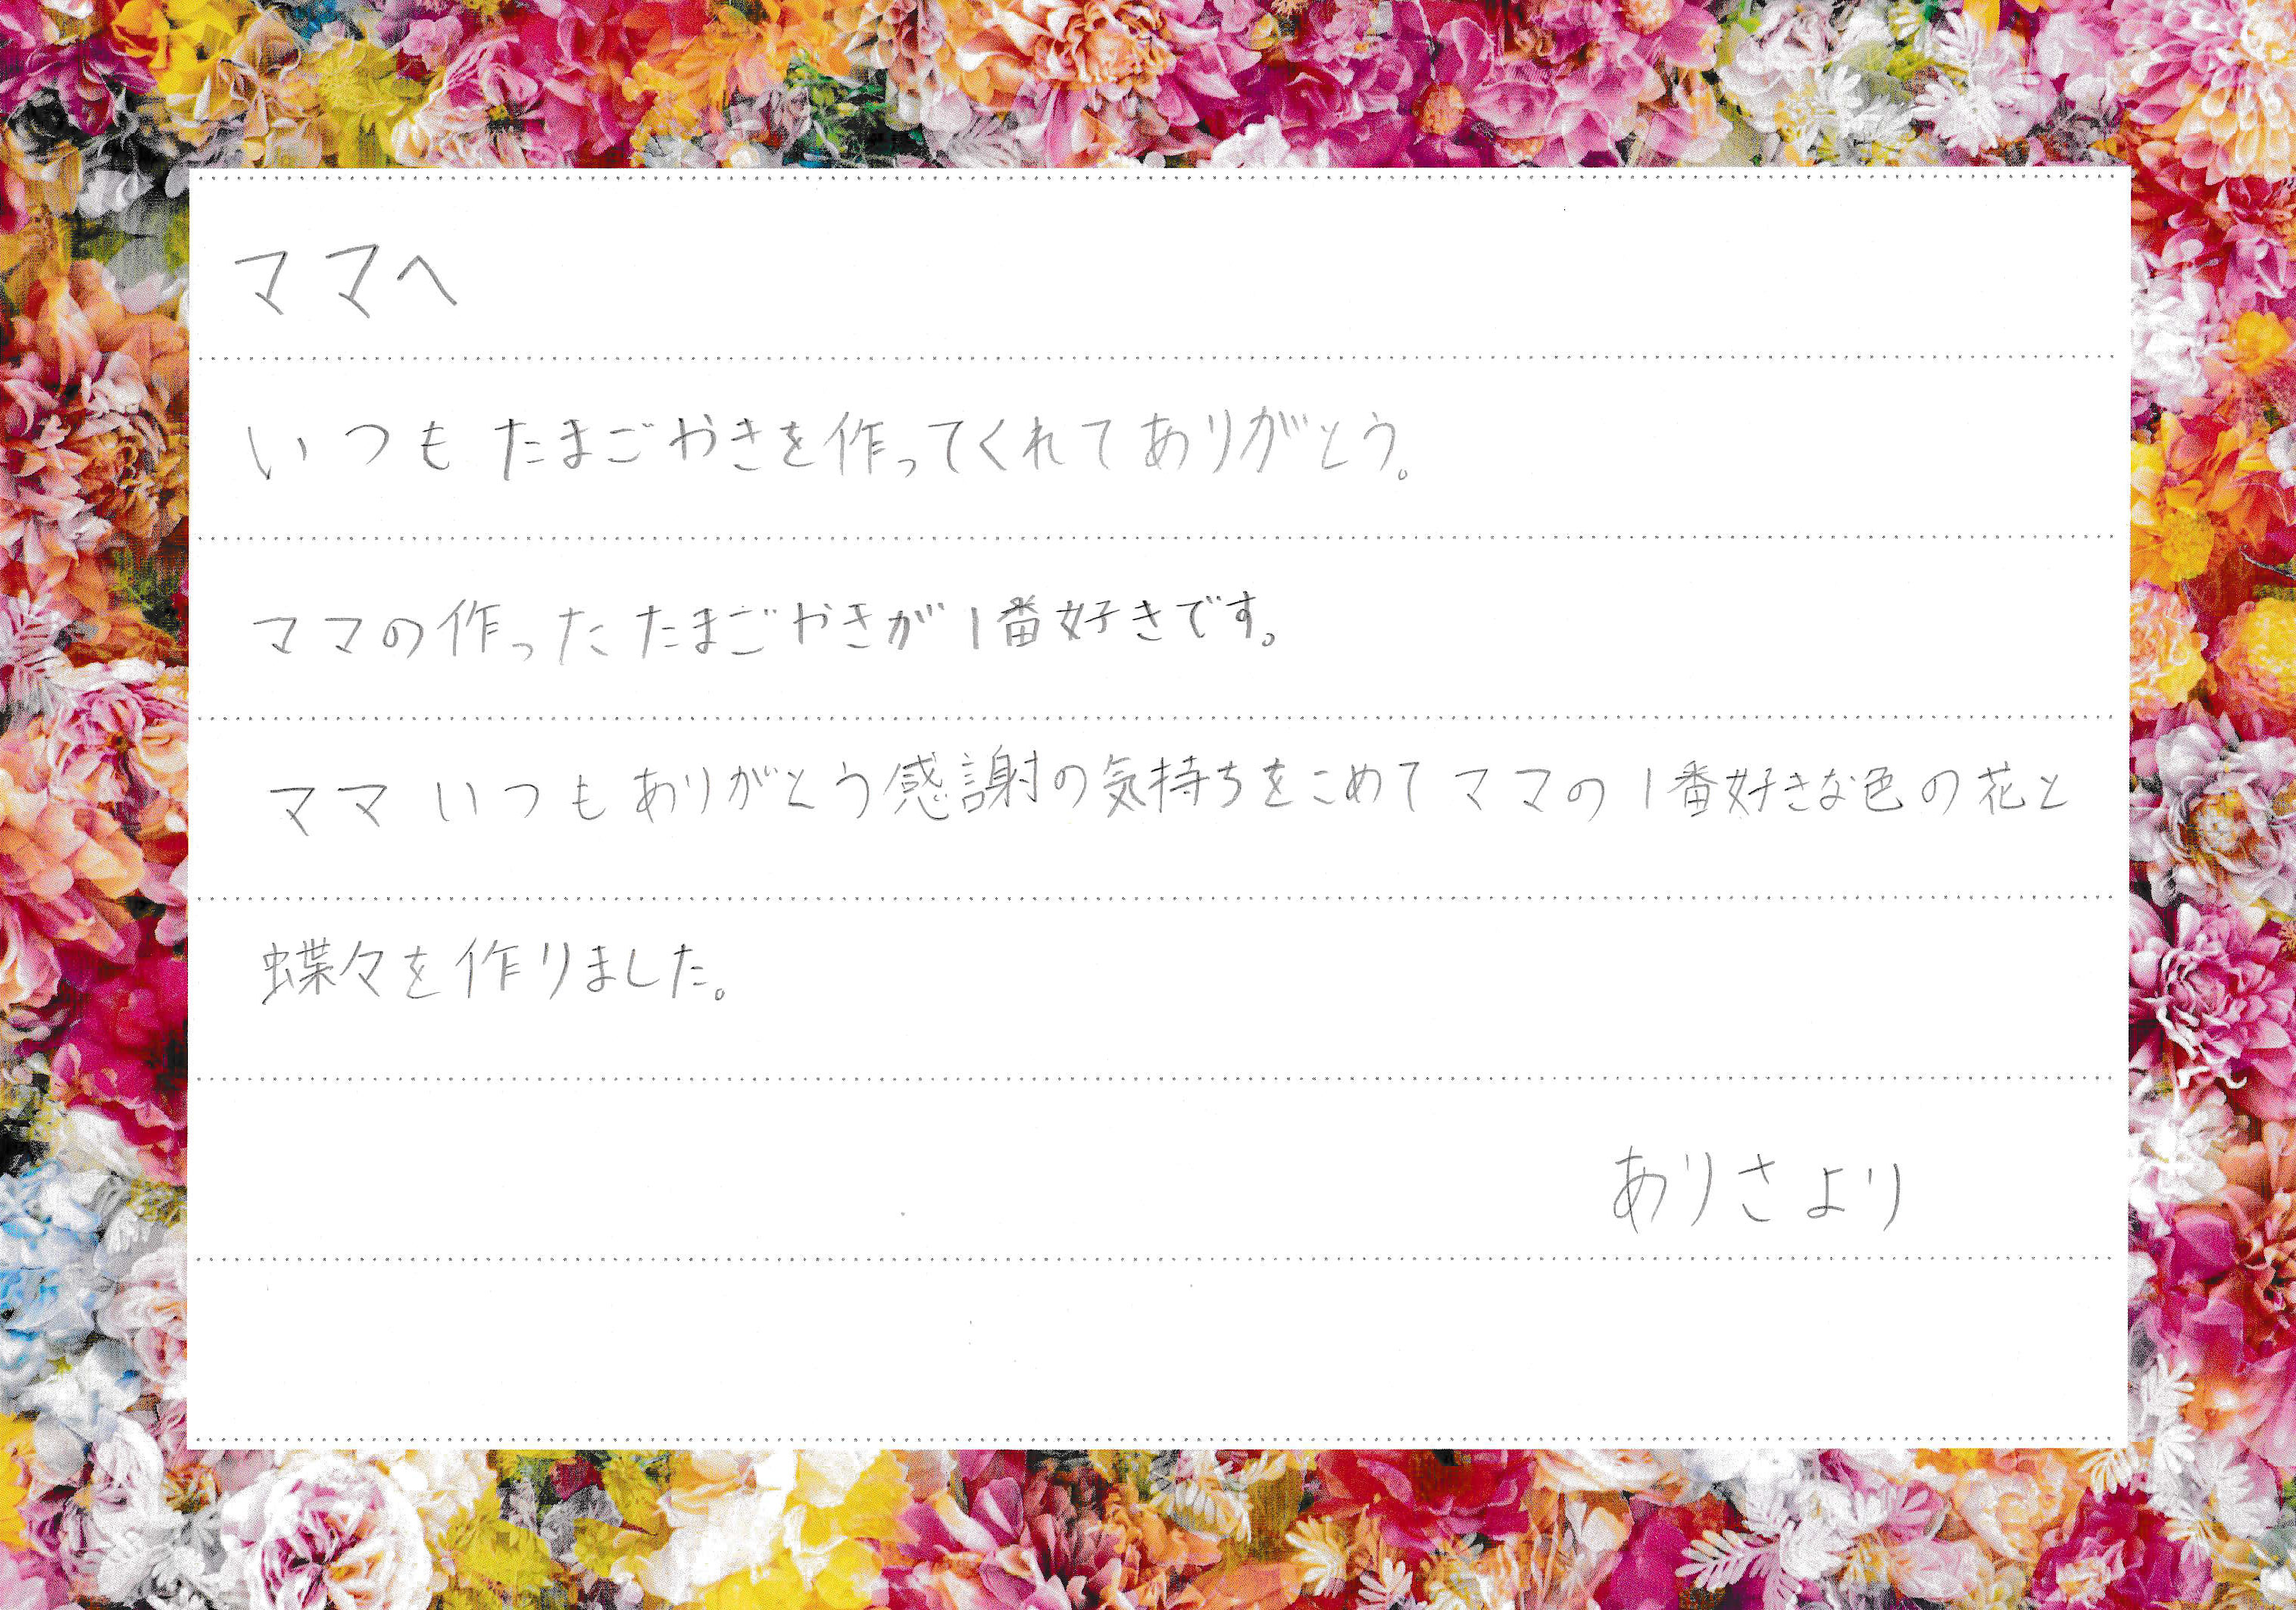 ママへ
いつもたまごやきを作ってくれてありがとう。
ママの作ったたまごやきが1番好きです。
ママいつもありがとう感謝の気持ちをこめてママの1番好きな色の花と
蝶々を作りました。
ありさより